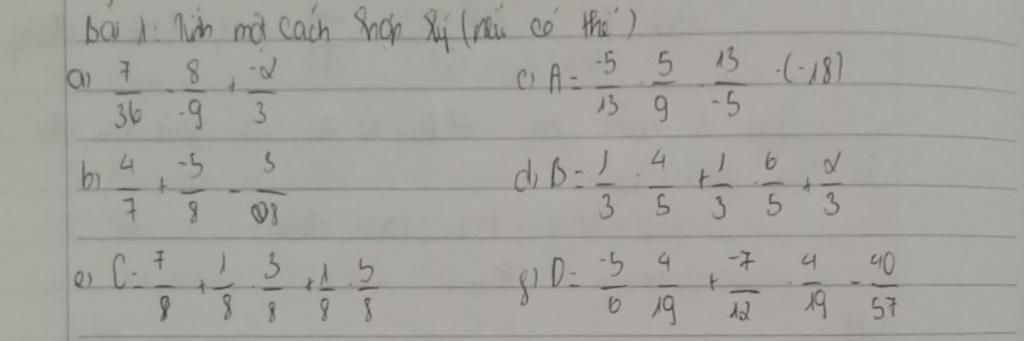 Bài 1: Tính một cách hợp lý (nếu có thể)
a) 7/36 - 8/-9 + -2/3 c) A = -5/13 . 5/9 . 13/-5 . (-18)
b) 4/7 + -5/8 - 3/28 d) B = 1/3 . 4/5 + 1/3 . 6/5 + 2/3
e) C = 7/8 + 1/8 . 3/8 + 1/8 . 5/8 g) D = -5/6 . 4/19 + -7/12 . 4/19 - 40/57